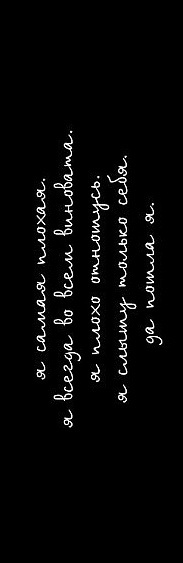 я самая плохая.
я всегда во всем виновата.
я плохо отношусь.
я слышу только себя.
да пошла я.